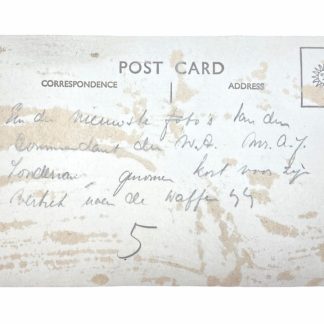 POST CARD
CORRESPONDENCE ADDRESS
Een der nieuwste foto's van den
Commandant der W.A. M. A. J.
Zondervan, genomen kort voor zijn
vertrek naar de Waffen SS
5